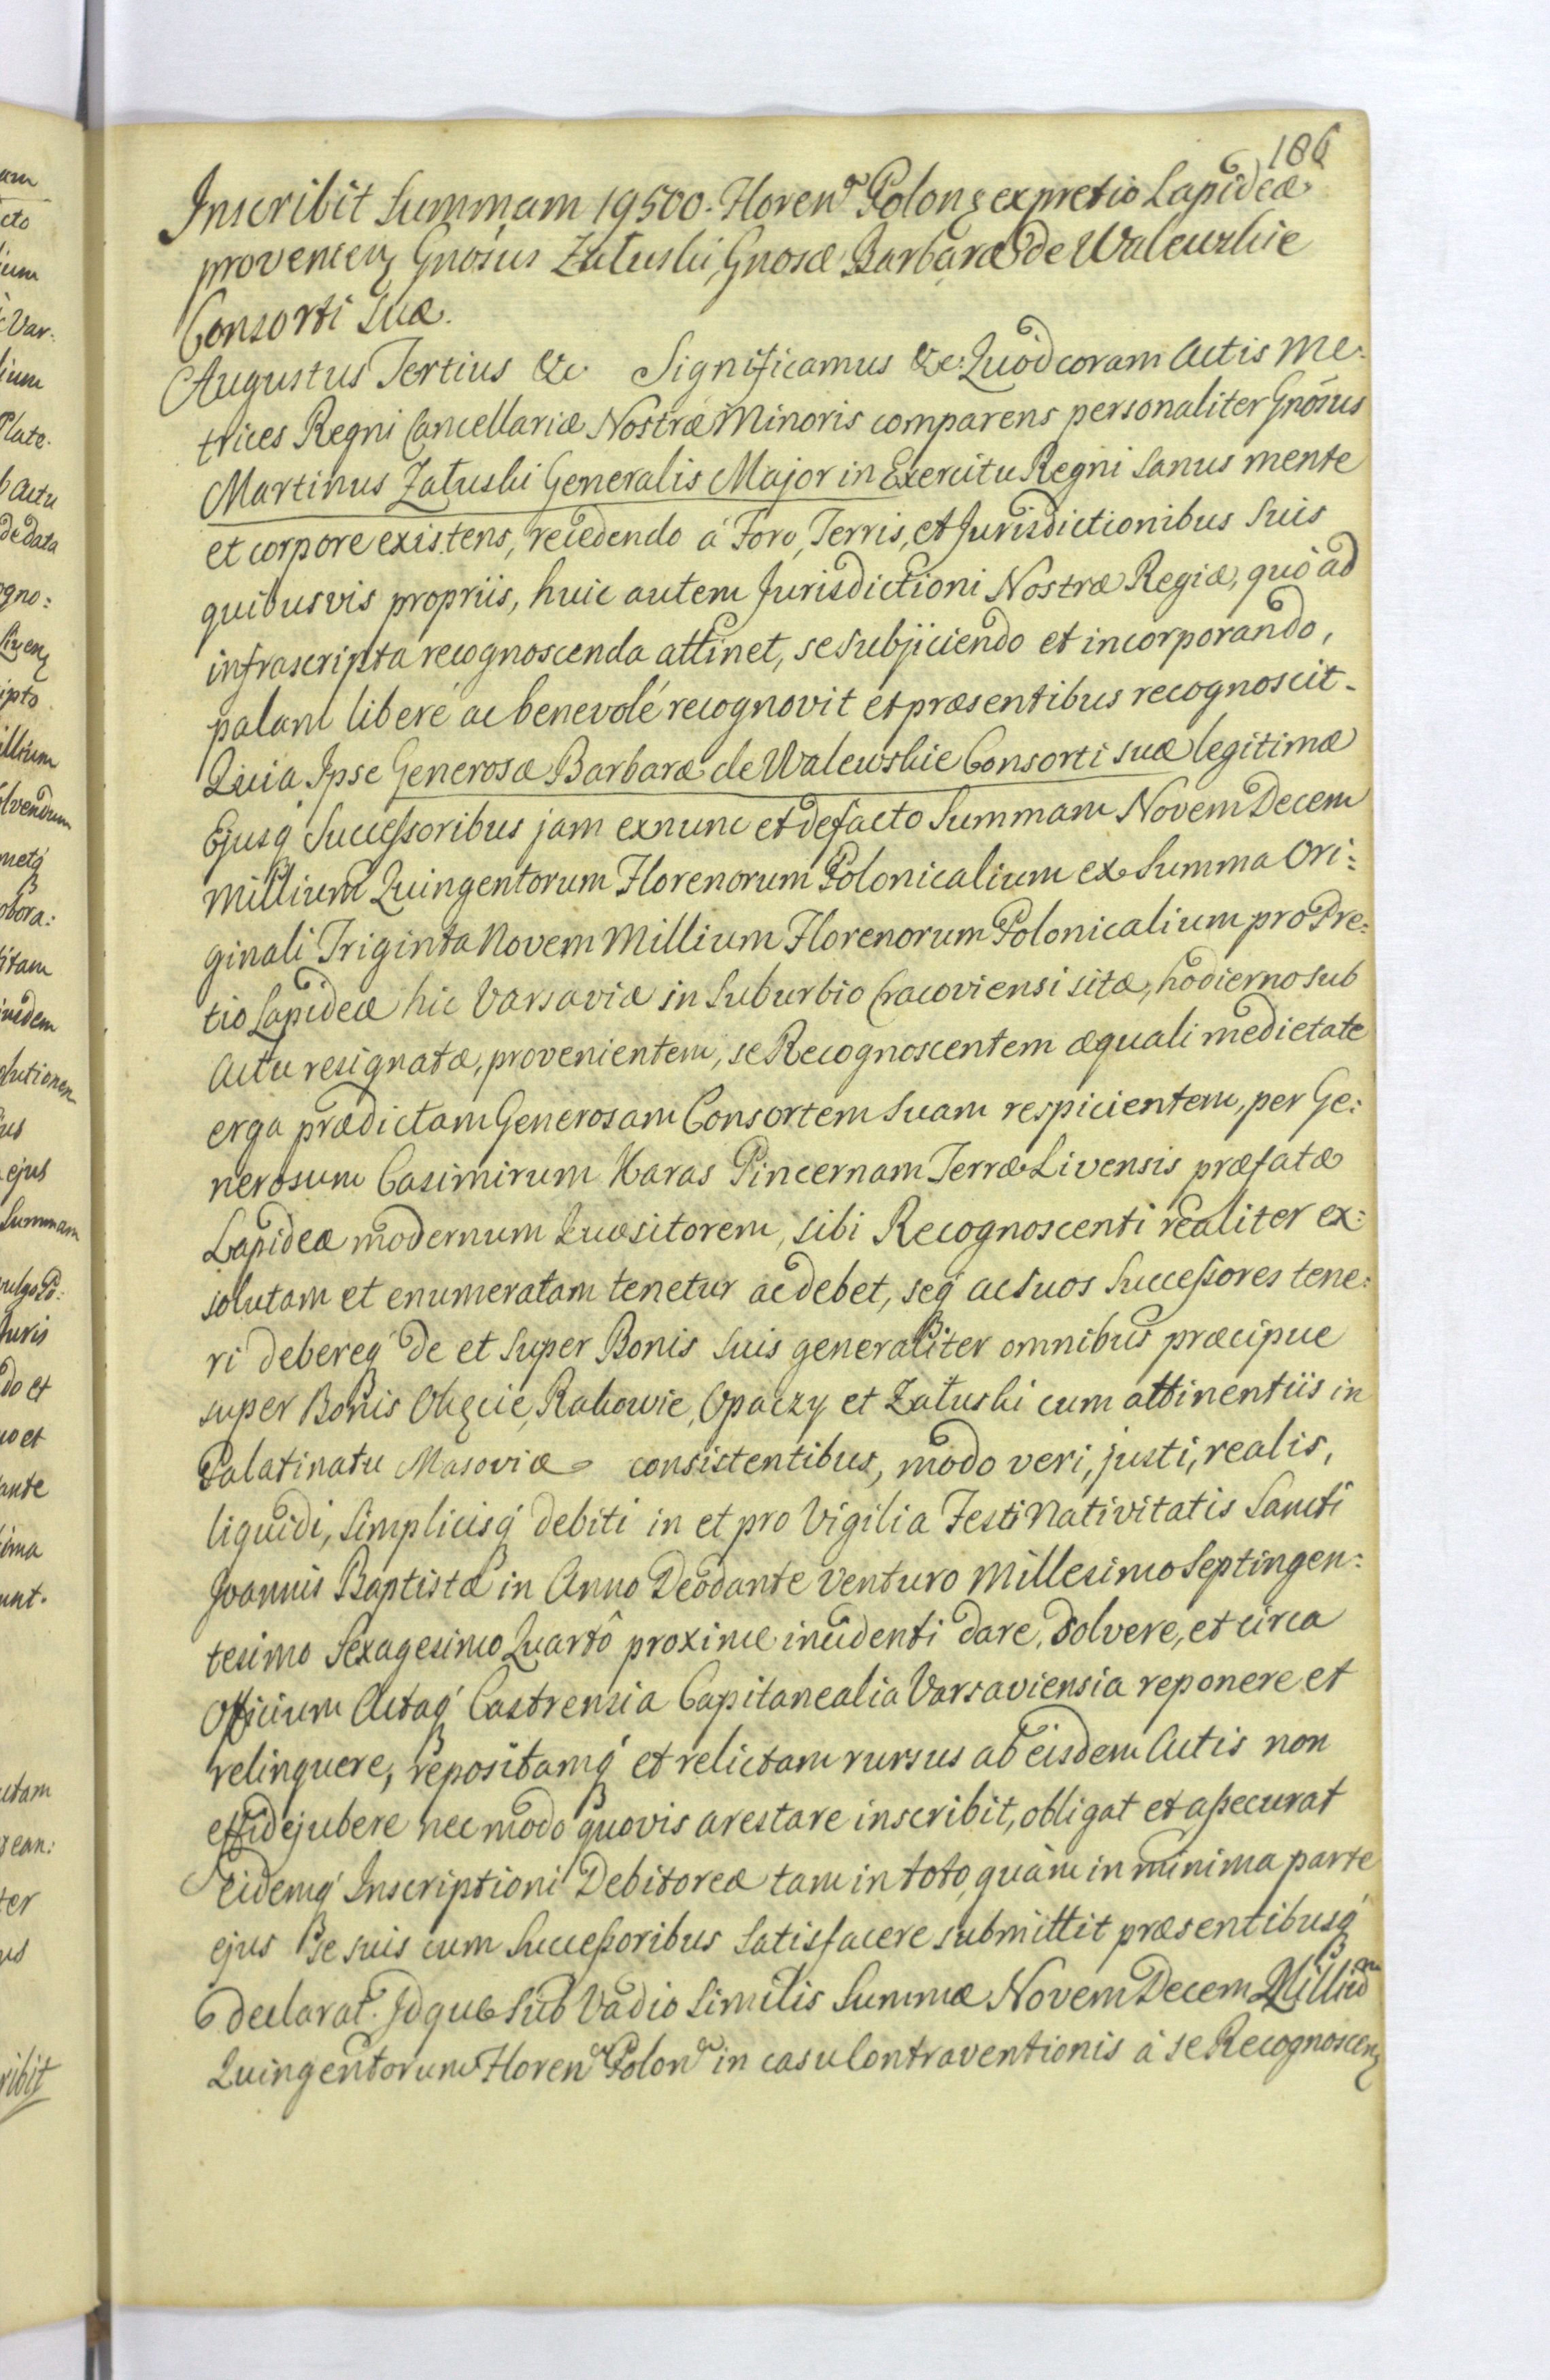 186
Inscribit Summam 19500. Floren̄ Polonʒ ex pretio Lapideæ
provenienʒ Gnosus Załuski, Gnosæ Barbaræ de Walewskie
Consorti suæ.
Augustus Tertius &c. Significamus &c: Quòd coram Actis Me-
trices Regni Cancellariæ Nostræ Minoris comparens personaliter Gnōsus
Martinus Załuski Generalis Major in Exercitu Regni Sanus mente
et corpore existens, recedendo á Foro, Terris, et Jurisdictionibus Suis
quibusvis propriis, huic autem Jurisdictioni Nostræ Regiæ, quò ad
infrascripta recognoscenda attinet, se subjiciendo et incorporando,
palam liberé ac benevolé recognovit et præsentibus recognoscit.
Quia Ipse Generosæ Barbaræ de Walewskie Consorti suæ legitimæ
Ejusq́ Successoribus jam exnunc et defacto Summam Novem Decem
Millium Quingentorum Florenorum Polonicalium ex Summa Ori:
ginali Triginta Novem Millium Florenorum Polonicalium pro Pre:
tio Lapideæ hic Varsaviæ in Suburbio Cracoviensi sitæ, hodierno sub
Actu resignatæ, provenientem, se Recognoscentem æquali medietate
erga prædictam Generosam Consortem Suam respicientem, per Ge:
nerosum Casimirum Karas Pincernam Terræ Livensis præfatæ
Lapideæ modernum Quæsitorem, sibi Recognoscenti realiter ex:
solutam et enumeratam tenetur ac debet, seq́ ac suos Successores tene:
ri debereq́ de et super Bonis suis generaliter omnibus præcipue
super Bonis Okęcie, Rakowie, Opaczy et Załuski cum attinentiis in
Palatinatu Masoviæ consistentibus, modo veri, justi, realis,
liquidi, Simplicisq́ debiti in et pro Vigilia Festi Nativitatis Sancti
Joannis Baptistæ in Anno Deodante venturo Millesimo Septingen:
tesimo Sexagesimo Quartô proxime incidenti dare, Solvere, et circa
Officium Actaq́ Castrensia Capitanealia Varsaviensia reponere et
relinquere, repositamq́ et relictam rursus ab eisdem Actis non
effidejubere nec modo quovis arestare inscribit, obligat et assecurat
Eidemq́ Inscriptioni Debitoreæ tam in toto, quàm in minima parte
ejus se suis cum Successoribus Satisfacere submittit præsentibusq́
declarat. Idque sub Vadio Similis Summæ Novem Decem Milliūm
Quingentorum Floren̄ Polon̄ in casu Contraventionis à se Recognoscenʒ